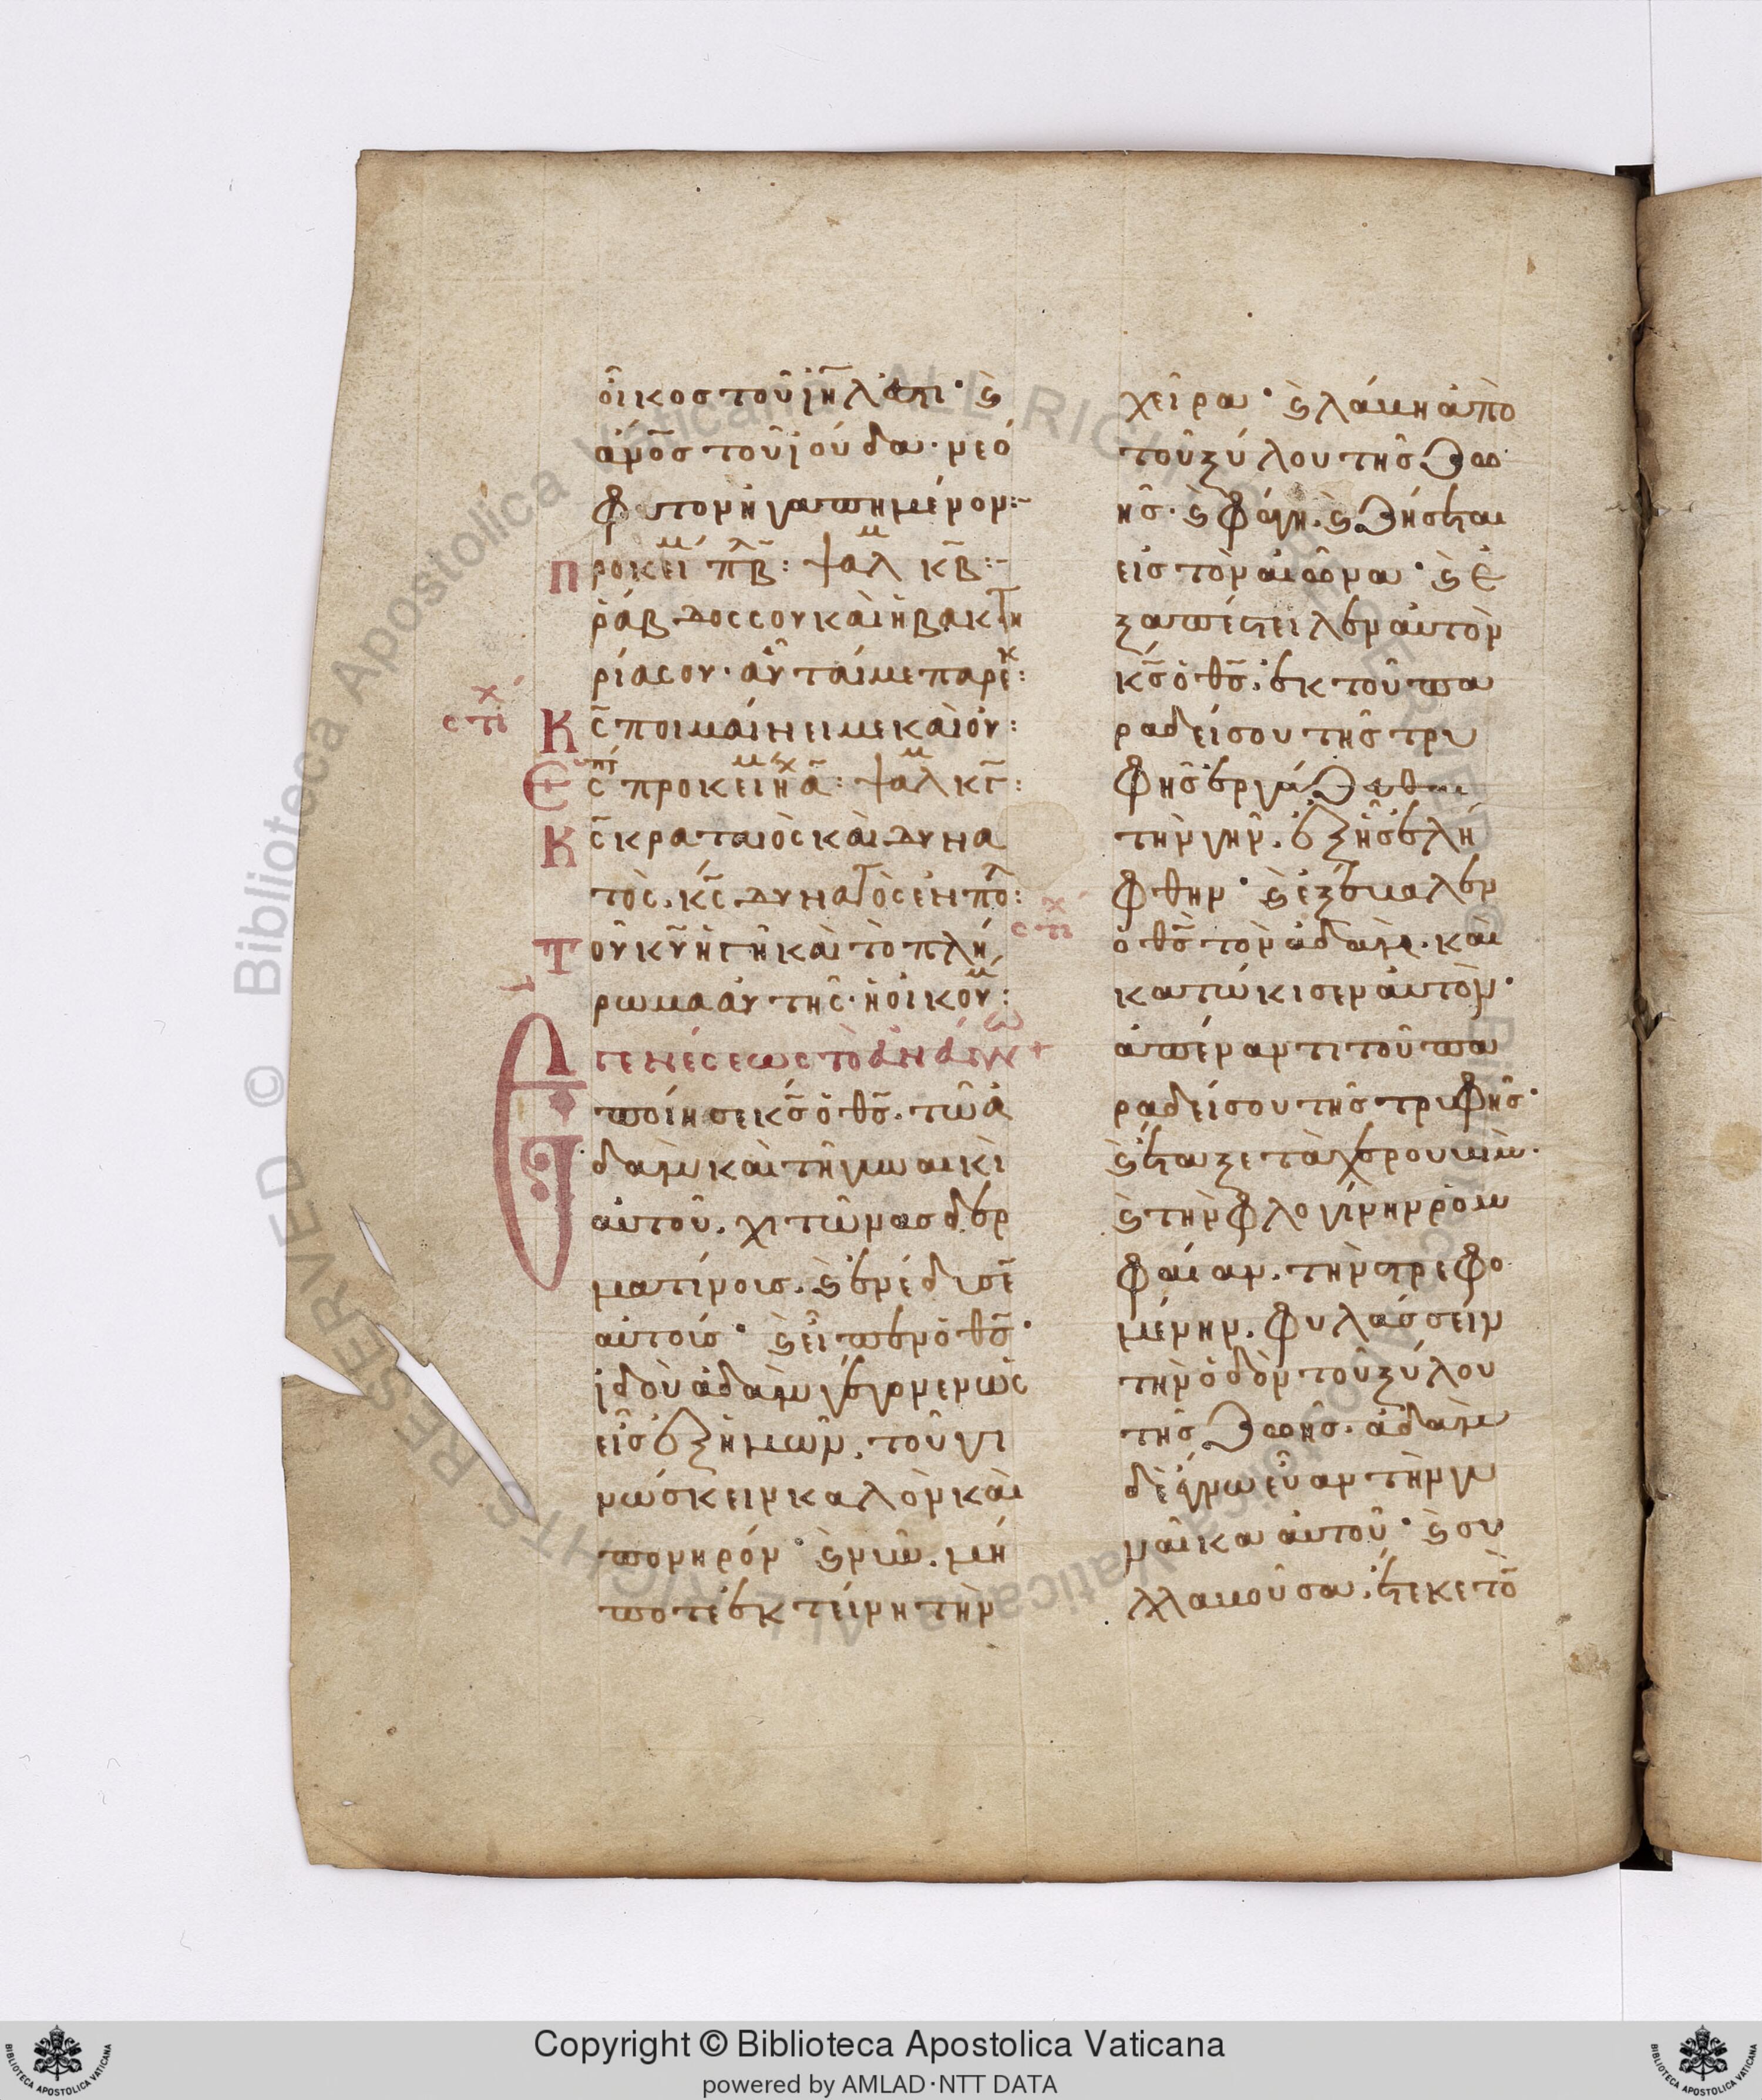 οἶκος τοῦ ἰη̅λ ἐστί· ϗ
ἀν̅ος τοῦ ἰούδα· νεό
φυτον ἠγαπημένον:-
Προκεί π̅β̅: ψαλ κ̅β̅:-
ῥάβδος σου καὶ ἡ βακτη
ρία σου· αὗταί με παρε:
στί
Κ̅ς̅ ποιμαίνει με καὶ οὐ:
Ἑσπ προκεί ἦχ α̅: ψαλ κγ̅:
Κ̅ς̅ κραταιὸς καὶ δυνα
τὸς. κ̅ς̅ δυνατὸς ἐν πο:
στί
Τοῦ κ̅υ̅ ἡ γῆ καὶ τὸ πλή
ρωμα αὐτῆς· ἡ οἰκου:
γενέσεως τὸ ἀνάγνω +
Ἐποίησε κ̅ς̅ ὁ θ̅ς̅. τῶ ἀ
δὰμ καὶ τῆ γυναικὶ
αὐτοῦ. χιτῶνας δερ
ματίνοις. ϗ ἐνέδυσε̅
αὐτούς· ϗ εἶπεν ὁ θ̅ς̅·
ἰδοὺ ἀδὰμ γέγονεν ὡς
εἷς ἐξ ἡμῶν. τοῦ γι
νώσκειν καλὸν καὶ
πονηρόν· ϗ νῦν. μή
ποτε ἐκτείνη τὴν
χεῖρα· ϗ λάβη ἀπὸ
τοῦ ξύλου τῆς ζω
ῆς· ϗ φάγη. ϗ ζήσεται
εἰς τὸν αἰῶνα· ϗ ἐ
ξαπέστειλεν αὐτὸν
κ̅ς̅ ὁ θ̅ς̅. ἐκ τοῦ πα
ραδείσου τῆς τρυ
φῆς ἐργάζεσθαι
τὴν γῆν. ἐξ ἧς ἐλή
φθην· ϗ ἐξέβαλεν
ὁ θ̅ς̅ τὸν ἀδὰμ. καὶ
κατώκισεν αὐτὸν·
ἀπέναντι τοῦ πα
ραδείσου τῆς τρυφῆς·
ϗ ἔταξε τὰ χερουβίμ·
ϗ τὴν φλογίνην ῥομ
φαίαν. τὴν στρεφο
μένην. φυλάσσειν
τὴν ὁδὸν τοῦ ξύλου
τῆς ζωῆς. ἀδὰμ
δὲ ἔγνω εὔαν τὴν γυ
ναῖκα αὐτοῦ· ϗ συ
λλαβοῦσα. ἔτεκε το̅
Copyright © Biblioteca Apostolica Vaticana
powered by AMLAD·NTT DATA